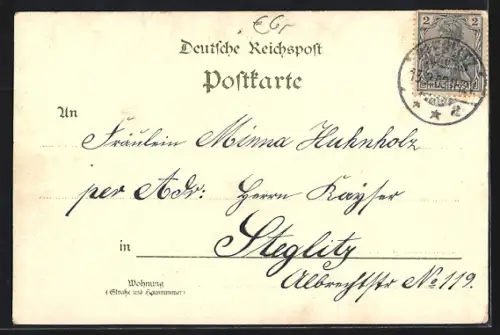 Deutsche Reichspost
Postkarte
2 2
An
Fräulein Minna Huhnholz
per Adr: Herrn Kayser
in Steglitz
Albrechtstr No 119.
Wohnung
(Straße und Hausnummer)